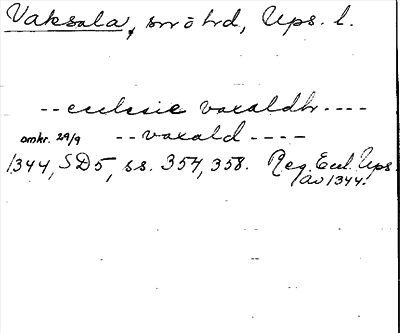 Vaksala, sn o hd, Ups. l.
-- ecclesie vaxaldh ----
omkr. 29/9 -- vaxald ----
1344, SD5, ss. 357, 358. Reg. Eccl. Ups.
av 1344.